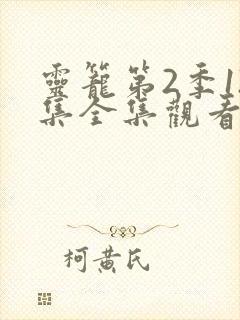 靈籠第2季1
集全集觀看
柯黄氏